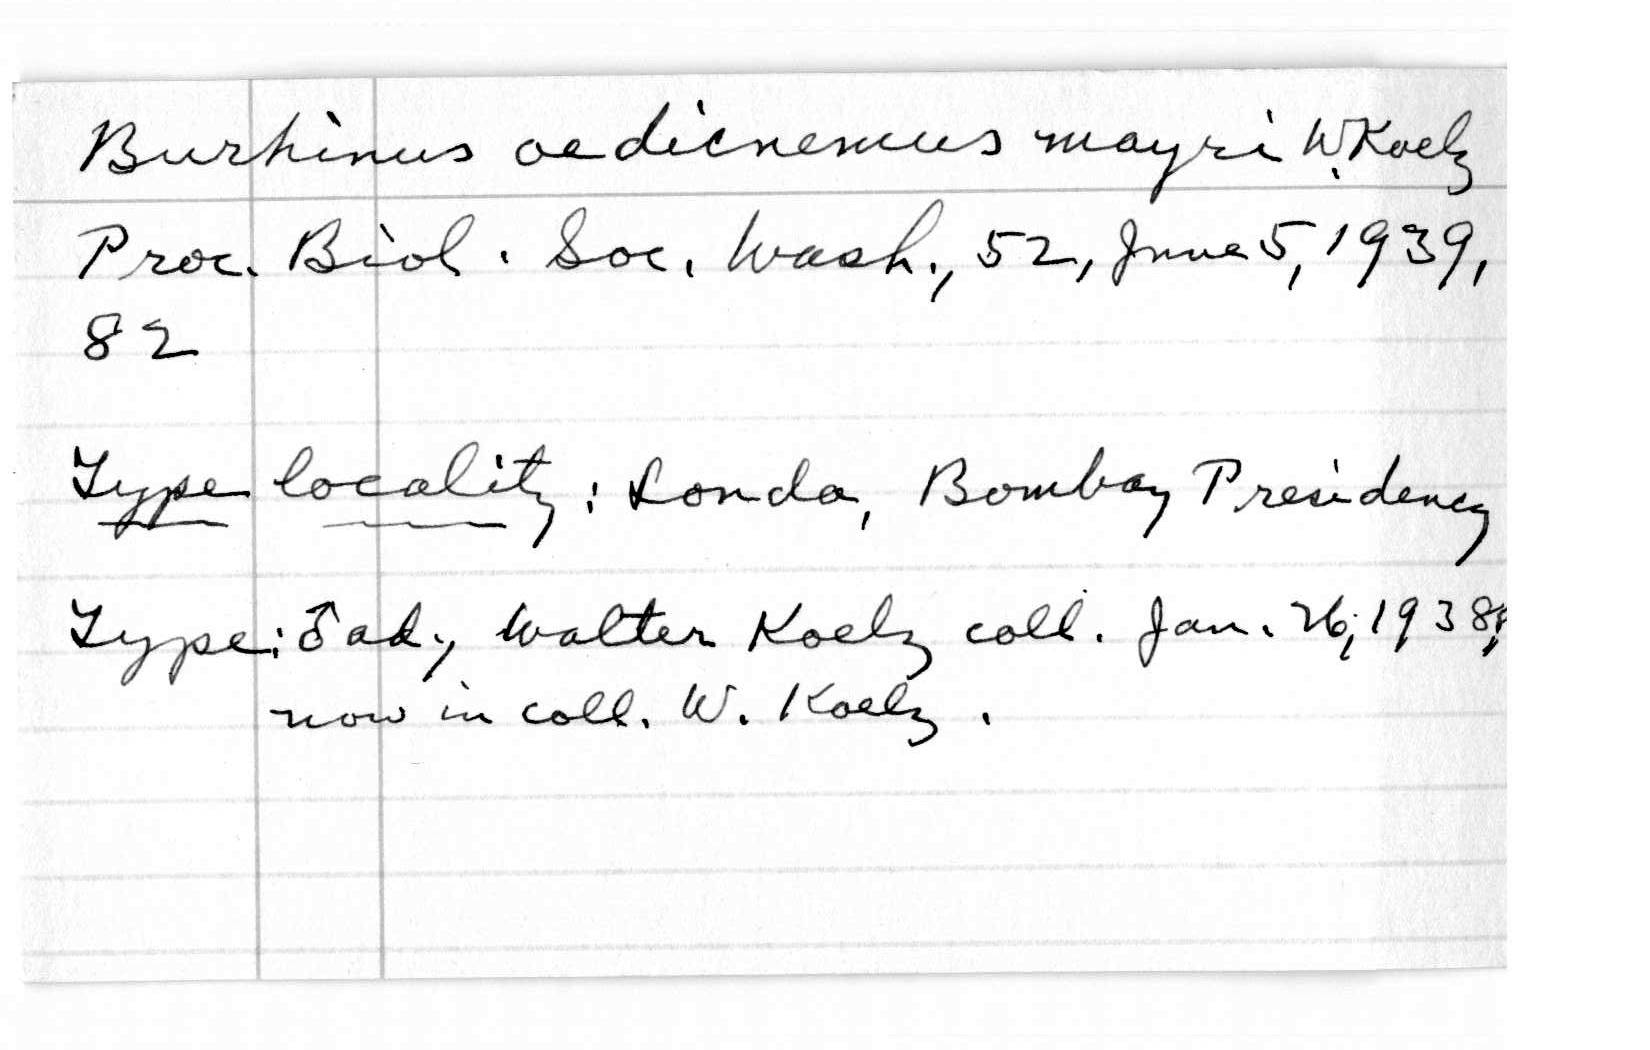 Burhinus oedicnemus mayri W. Koelz
Proc. Biol. Soc. Wash., 52, June 5, 1939,
82
Type locality: Londa, Bombay Presidency
Type: ♂ ad., Walter Koelz coll. Jan. 26, 1938,
now in coll. W. Koelz.